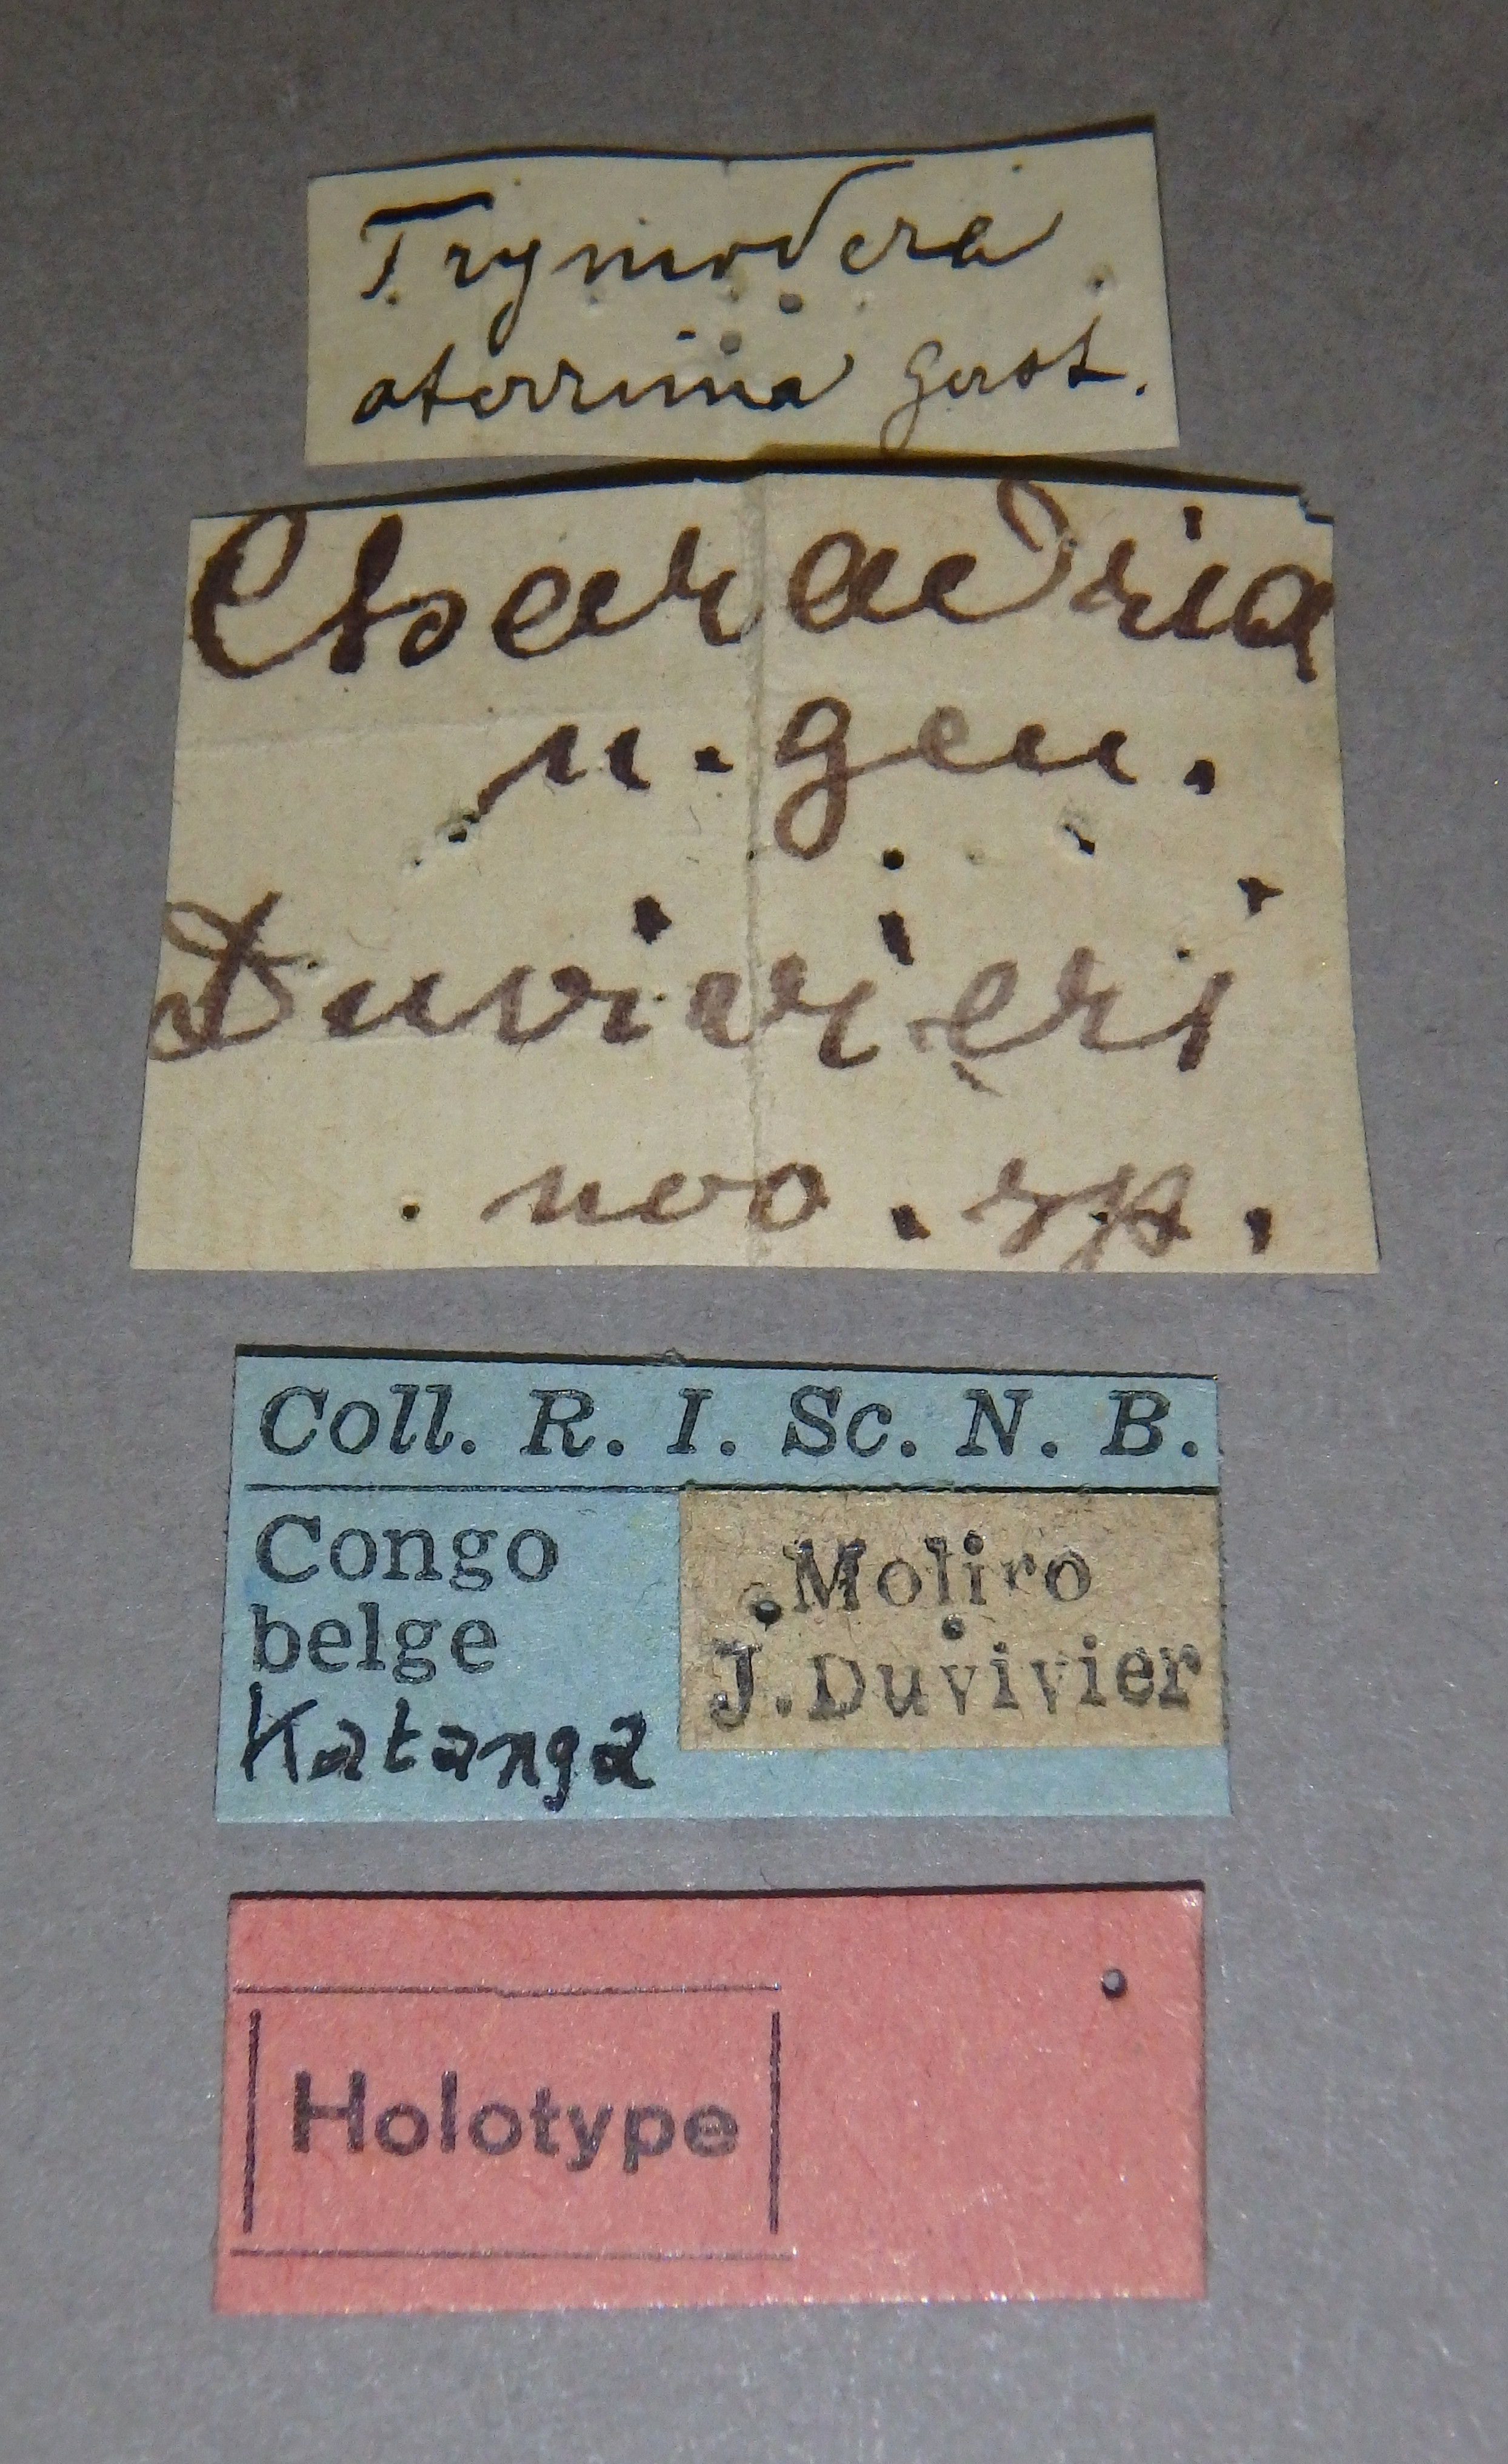 Trymodera
aterrima Gerst.
Charadria
n. gen.
Duvivieri
nov. sp.
Coll. R. I. Sc. N. B.
Congo
belge
Katanga
Moliro
J. Duvivier
Holotype